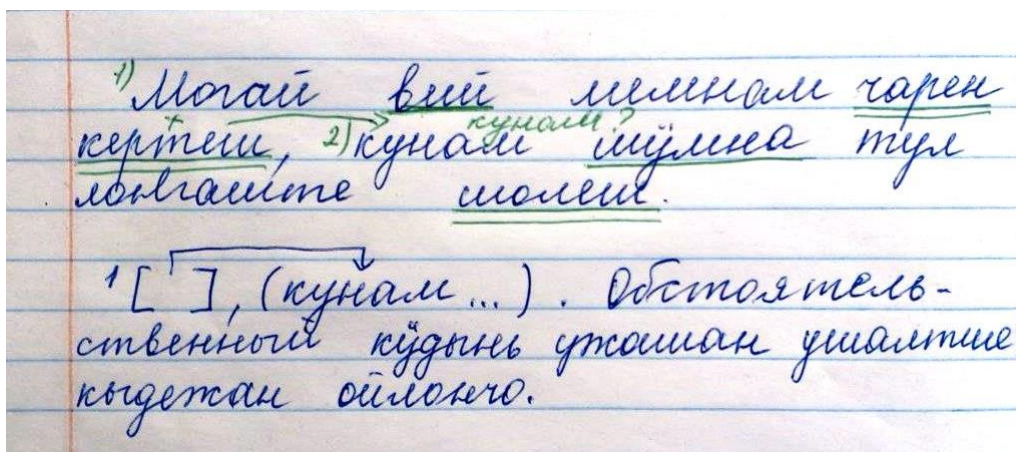 1) Могай вий мемнам чарен
кунам?
кертеш, 2) кунам шӱмна тул
лоҥгаште шолеш.
1 [ ], (кунам ...). Обстоятель-
ственный кӱдынь ужашан ушалтше
кыдежан ойлончо.